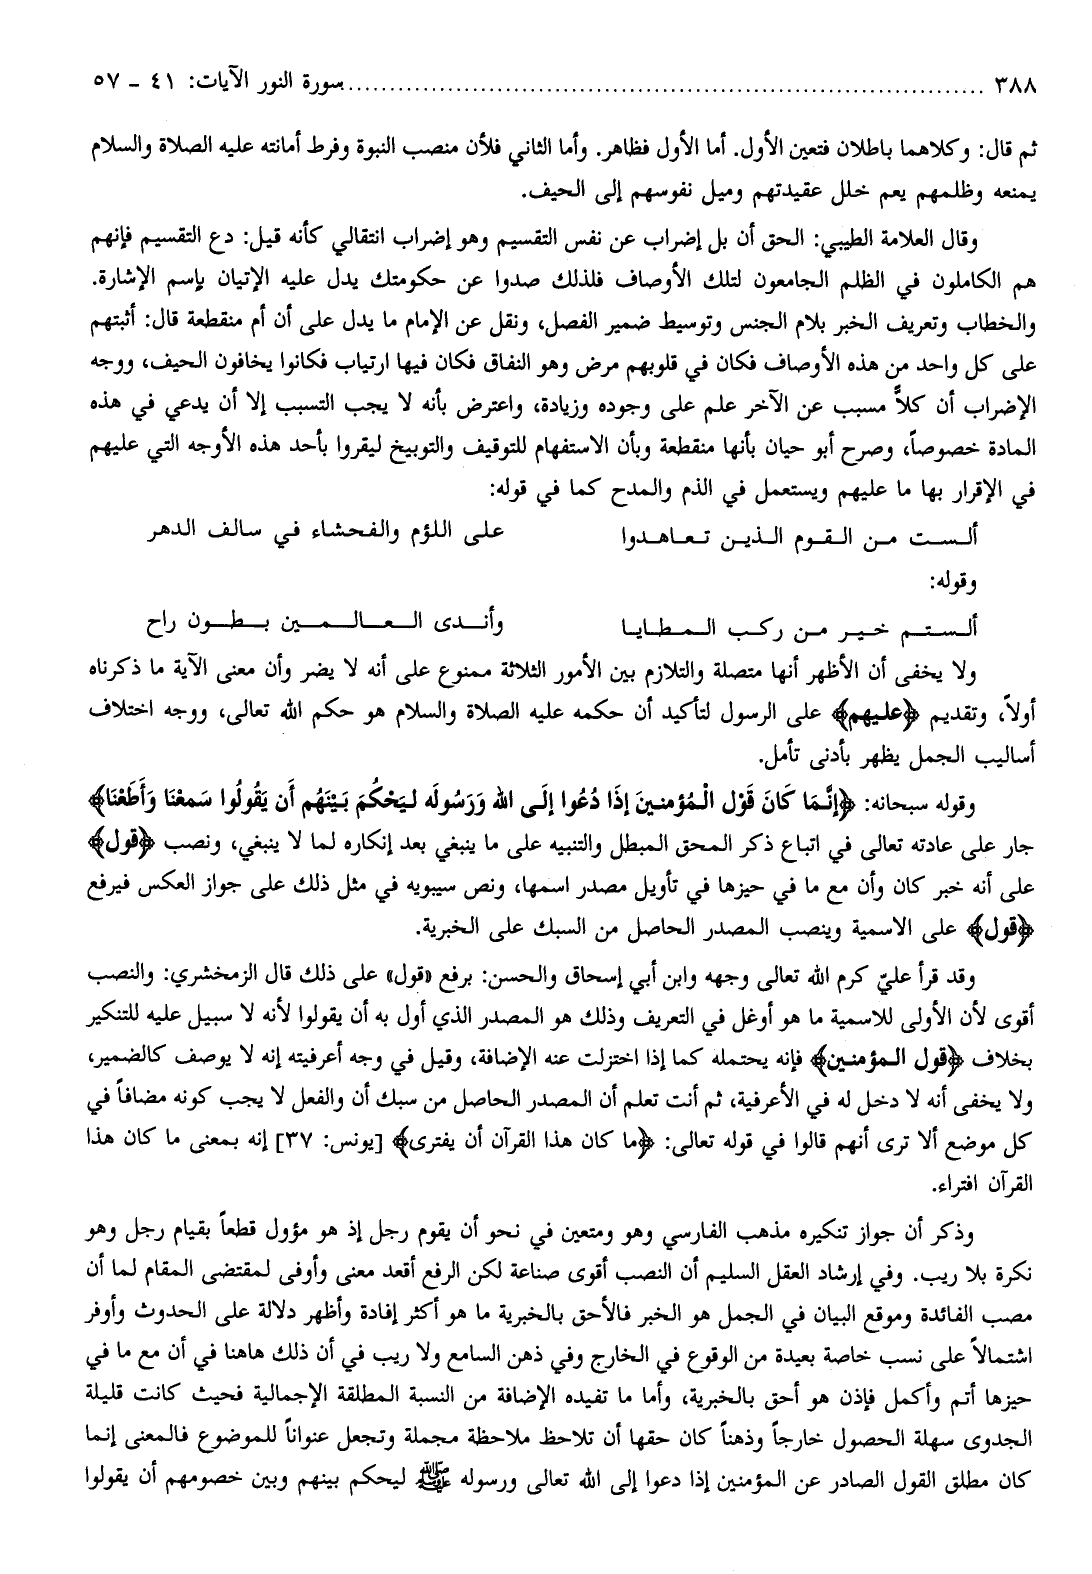 ٣٨٨ ........................................................................ سورة النور الآيات: ٤١ - ٥٧
ثم قال: وكلاهما باطلان فتعين الأول. أما الأول فظاهر. وأما الثاني فلأن منصب النبوة وفرط أمانته عليه الصلاة والسلام
يمنعه وظلمهم يعم خلل عقيدتهم وميل نفوسهم إلى الحيف.
وقال العلامة الطيبي: الحق أن بل إضراب عن نفس التقسيم وهو إضراب انتقالي كأنه قيل: دع التقسيم فإنهم
هم الكاملون في الظلم الجامعون لتلك الأوصاف فلذلك صدوا عن حكومتك يدل عليه الإتيان بإسم الإشارة.
والخطاب وتعريف الخبر بلام الجنس وتوسيط ضمير الفصل، ونقل عن الإمام ما يدل على أن أم منقطعة قال: أثبتهم
على كل واحد من هذه الأوصاف فكان في قلوبهم مرض وهو النفاق فكان فيها ارتياب فكانوا يخافون الحيف، ووجه
الإضراب أن كلاًّ مسبب عن الآخر علم على وجوده وزيادة، واعترض بأنه لا يجب التسبب إلا أن يدعي في هذه
المادة خصوصاً، وصرح أبو حيان بأنها منقطعة وبأن الاستفهام للتوقيف والتوبيخ ليقروا بأحد هذه الأوجه التي عليهم
في الإقرار بها ما عليهم ويستعمل في الذم والمدح كما في قوله:
ألست من القوم الذين تعاهدوا على اللؤم والفحشاء في سالف الدهر
وقوله:
ألستم خير من ركب المطايا وأندى العالمين بطون راح
ولا يخفى أن الأظهر أنها متصلة والتلازم بين الأمور الثلاثة ممنوع على أنه لا يضر وأن معنى الآية ما ذكرناه
أولاً، وتقديم ﴿عليهم﴾ على الرسول لتأكيد أن حكمه عليه الصلاة والسلام هو حكم الله تعالى، ووجه اختلاف
أساليب الجمل يظهر بأدنى تأمل.
وقوله سبحانه: ﴿إِنَّمَا كَانَ قَوْلَ الْمُؤمنينَ إذَا دُعُوا إلَى الله وَرَسُولَه ليَحْكُمَ بَيْنَهُم أَن يَقُولُوا سَمعْنَا وَأَطَعْنَا﴾
جار على عادته تعالى في اتباع ذكر المحق المبطل والتنبيه على ما ينبغي بعد إنكاره لما لا ينبغي، ونصب ﴿قول﴾
على أنه خبر كان وأن مع ما في حيزها في تأويل مصدر اسمها، ونص سيبويه في مثل ذلك على جواز العكس فيرفع
﴿قول﴾ على الاسمية وينصب المصدر الحاصل من السبك على الخبرية.
وقد قرأ عليّ كرم الله تعالى وجهه وابن أبي إسحاق والحسن: برفع «قول» على ذلك قال الزمخشري: والنصب
أقوى لأن الأولى للاسمية ما هو أوغل في التعريف وذلك هو المصدر الذي أول به أن يقولوا لأنه لا سبيل عليه للتنكير
بخلاف ﴿قول المؤمنين﴾ فإنه يحتمله كما إذا اختزلت عنه الإضافة، وقيل في وجه أعرفيته إنه لا يوصف كالضمير،
ولا يخفى أنه لا دخل له في الأعرفية، ثم أنت تعلم أن المصدر الحاصل من سبك أن والفعل لا يجب كونه مضافاً في
كل موضع ألا ترى أنهم قالوا في قوله تعالى: ﴿ما كان هذا القرآن أن يفترى﴾ [يونس: ٣٧] إنه بمعنى ما كان هذا
القرآن افتراء.
وذكر أن جواز تنكيره مذهب الفارسي وهو ومتعين في نحو أن يقوم رجل إذ هو مؤول قطعاً بقيام رجل وهو
نكرة بلا ريب. وفي إرشاد العقل السليم أن النصب أقوى صناعة لكن الرفع أقعد معنى وأوفى لمقتضى المقام لما أن
مصب الفائدة وموقع البيان في الجمل هو الخبر فالأحق بالخبرية ما هو أكثر إفادة وأظهر دلالة على الحدوث وأوفر
اشتمالاً على نسب خاصة بعيدة من الوقوع في الخارج وفي ذهن السامع ولا ريب في أن ذلك هاهنا في أن مع ما في
حيزها أتم وأكمل فإذن هو أحق بالخبرية، وأما ما تفيده الإضافة من النسبة المطلقة الإجمالية فحيث كانت قليلة
الجدوى سهلة الحصول خارجاً وذهناً كان حقها أن تلاحظ ملاحظة مجملة وتجعل عنواناً للموضوع فالمعنى إنما
كان مطلق القول الصادر عن المؤمنين إذا دعوا إلى الله تعالى ورسوله ﷺ ليحكم بينهم وبين خصومهم أن يقولوا